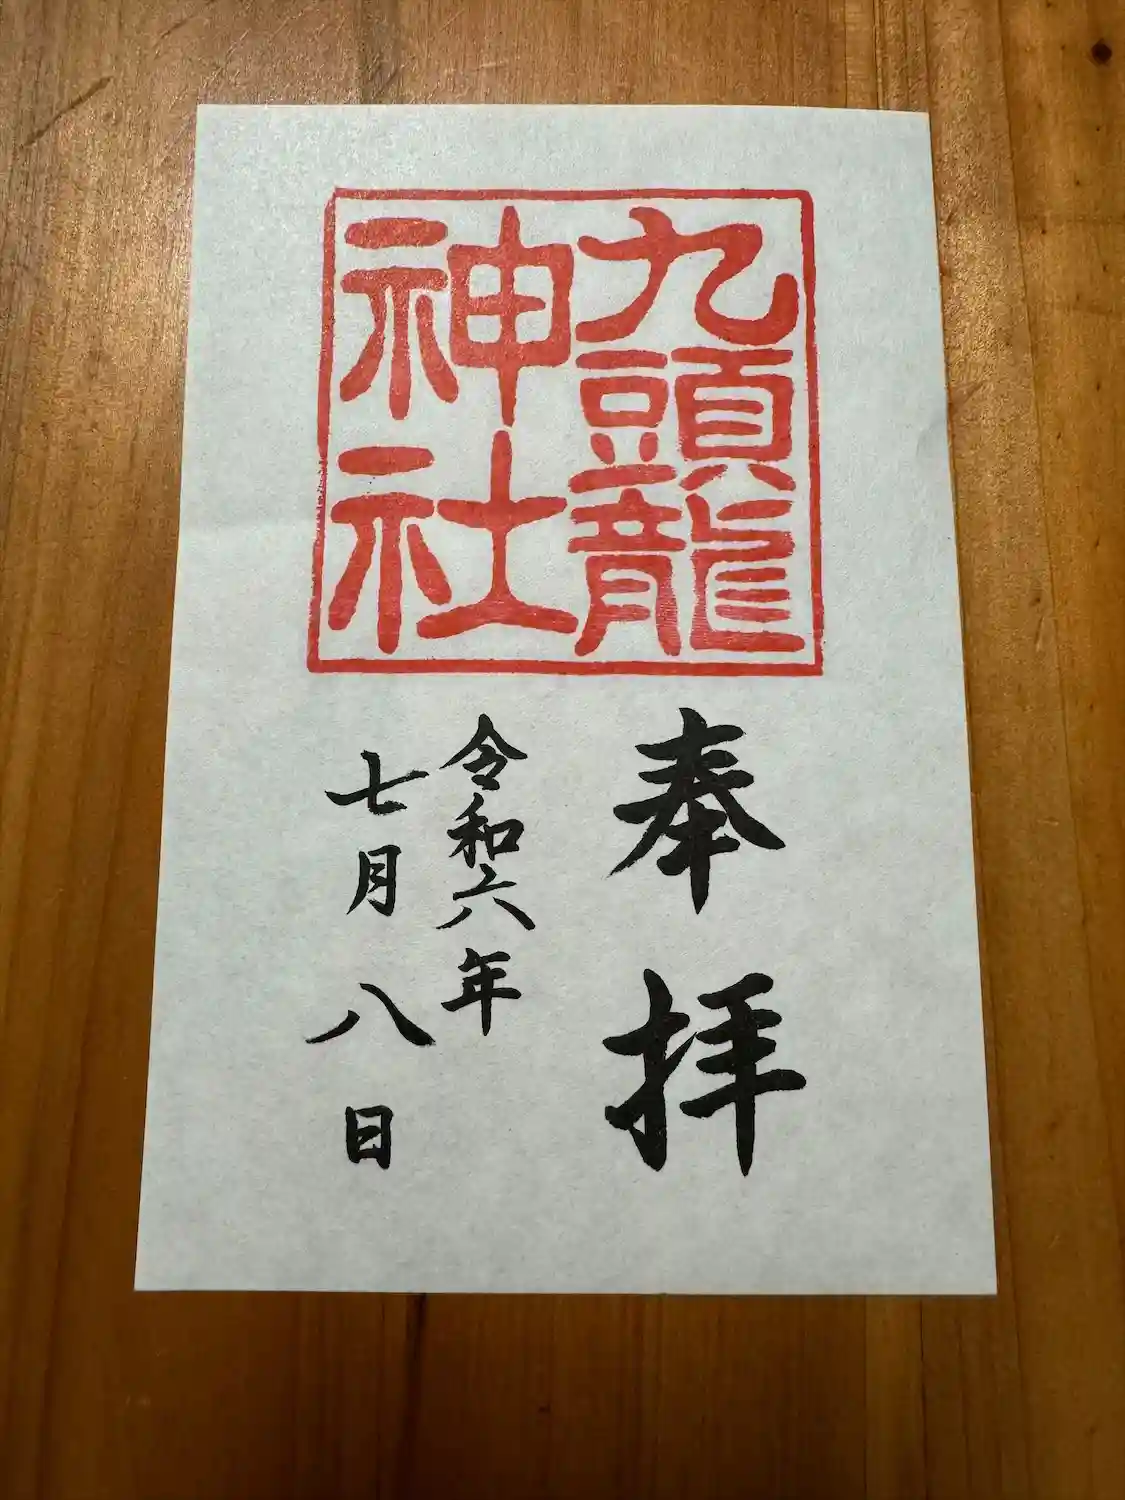 九頭龍
神社
奉拝
令和六年
七月八日